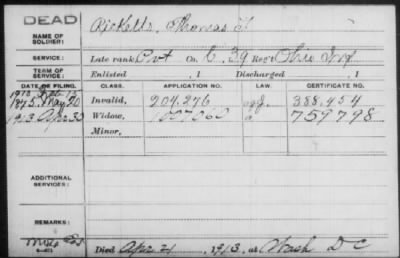 DEAD
NAME OF SOLDIER: Ricketts, Thomas
SERVICE: Late rank Pvt Co. C. 39 Reg't Ohio Inf
TERM OF SERVICE: Enlisted , 1 Discharged , 1
DATE OF FILING. CLASS. APPLICATION NO. LAW. CERTIFICATE NO.
1875 May 20 Invalid, 204.276 388.454
1913 Apr 30 Widow, 1007060 759798
Minor,
ADDITIONAL SERVICES:
REMARKS:
Died Apr 21 , 1913, at Wash D C